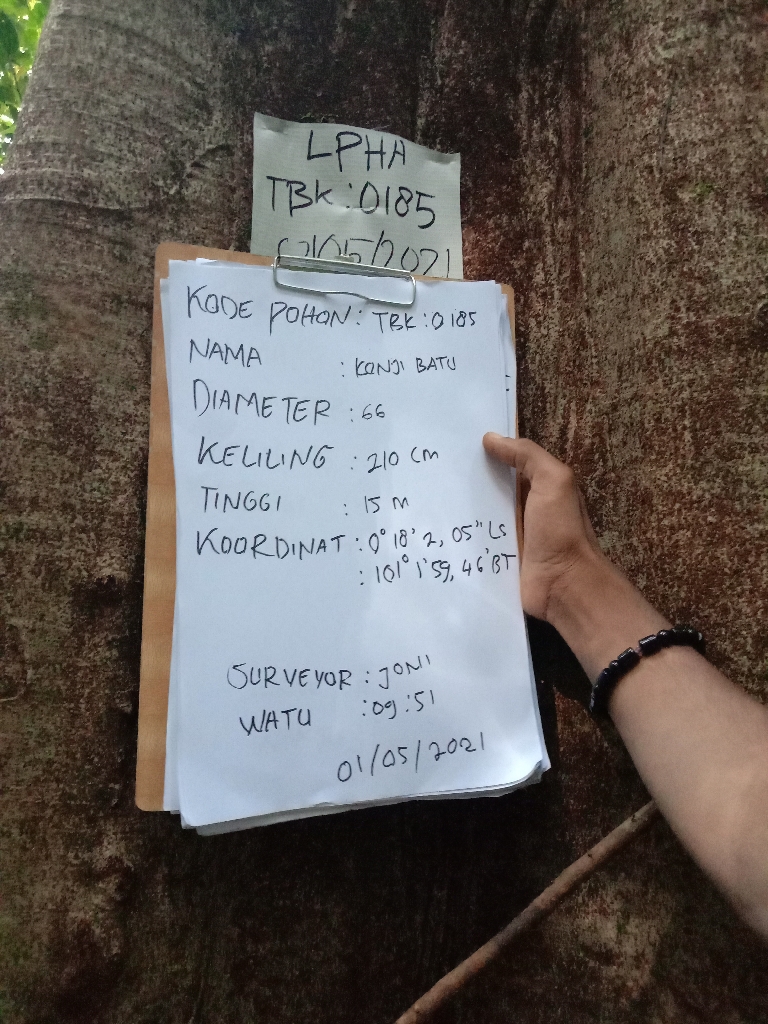 LPHA
TBK : 0185
01/05/2021
KODE POHON : TBK : 0185
NAMA : KONJI BATU
DIAMETER : 66
KELILING : 210 cm
TINGGI : 15 M
KOORDINAT : 0° 18' 2, 05" LS
: 101° 1' 59, 46' BT
SURVEYOR : JONI
WATU : 09 : 51
01/05/2021